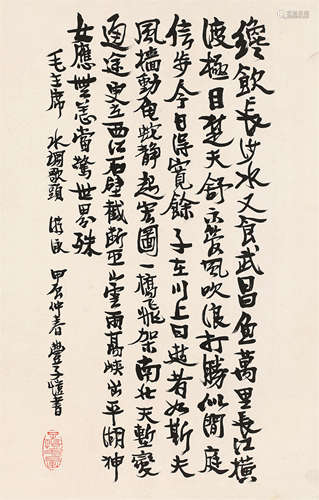 纔飲長沙水又食武昌魚萬里長江橫
渡極目楚天舒不管風吹浪打勝似閒庭
信步今日得寬餘 子在川上曰逝者如斯夫
風檣動龜蛇靜起宏圖一橋飛架南北天塹變
通途更立西江石壁截斷巫山雲雨高峽出平湖神
女應無恙當驚世界殊
毛主席 水調歌頭 游泳 甲辰仲春 豐子愷書